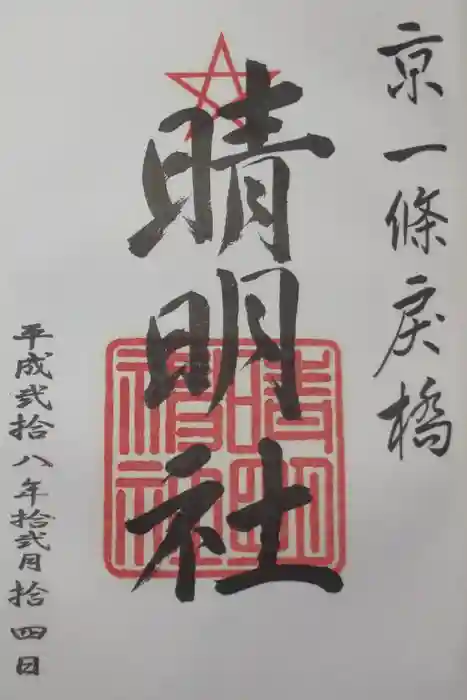 京一條戻橋
晴明社
平成弐拾八年拾弐月拾四日
晴明
神社